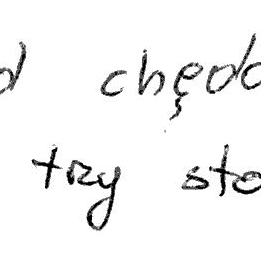 d chędo
trzy sto